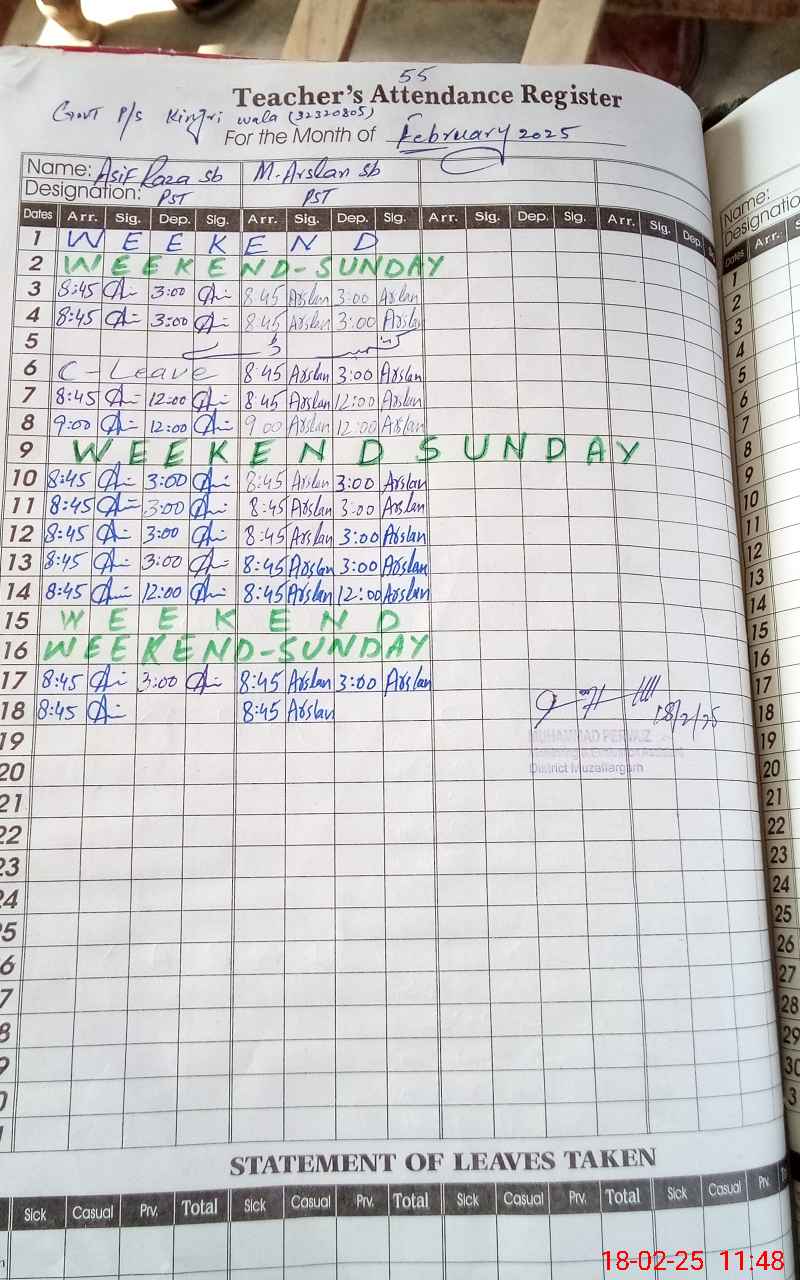 55
Teacher's Attendance Register
Govt P/s Kinjri wala (32320805)
For the Month of February 2025
Name: Asif Raza sb M. Arslan sb
Designation: PST PST
Dates Arr. Sig. Dep. Sig. Arr. Sig. Dep. Sig. Arr. Sig. Dep. Sig. Arr. Sig. Dep. S
1 W E E K E N D
2 WEEKEND-SUNDAY
3 8:45 3:00 8:45 Arslan 3:00 Arslan
4 8:45 3:00 8:45 Arslan 3:00 Arslan
5
6 C-Leave 8:45 Arslan 3:00 Arslan
7 8:45 12:00 8:45 Arslan 12:00 Arslan
8 9:00 12:00 9 00 Arslan 12:00 Arslan
9 W E E K E N D S U N D A Y
10 8:45 3:00 8:45 Arslan 3:00 Arslan
11 8:45 3:00 8:45 Arslan 3:00 Arslan
12 8:45 3:00 8:45 Arslan 3:00 Arslan
13 8:45 3:00 8:45 Arslan 3:00 Arslan
14 8:45 12:00 8:45 Arslan 12:00 Arslan
15 W E E K E N D
16 WEEKEND-SUNDAY
17 8:45 3:00 8:45 Arslan 3:00 Arslan
18 8:45 8:45 Arslan
18/2/25
MUHAMMAD PERVAIZ
District Muzaffargarh
19
20
21
22
23
24
5
6
7
8
9
0
1
STATEMENT OF LEAVES TAKEN
Sick Casual Prv. Total Sick Casual Prv. Total Sick Casual Prv. Total Sick Casual Prv.
Name:
Designatio
Dates Arr. S
1
2
3
4
5
6
7
8
9
10
11
12
13
14
15
16
17
18
19
20
21
22
23
24
25
26
27
28
29
30
3
18-02-25 11:48